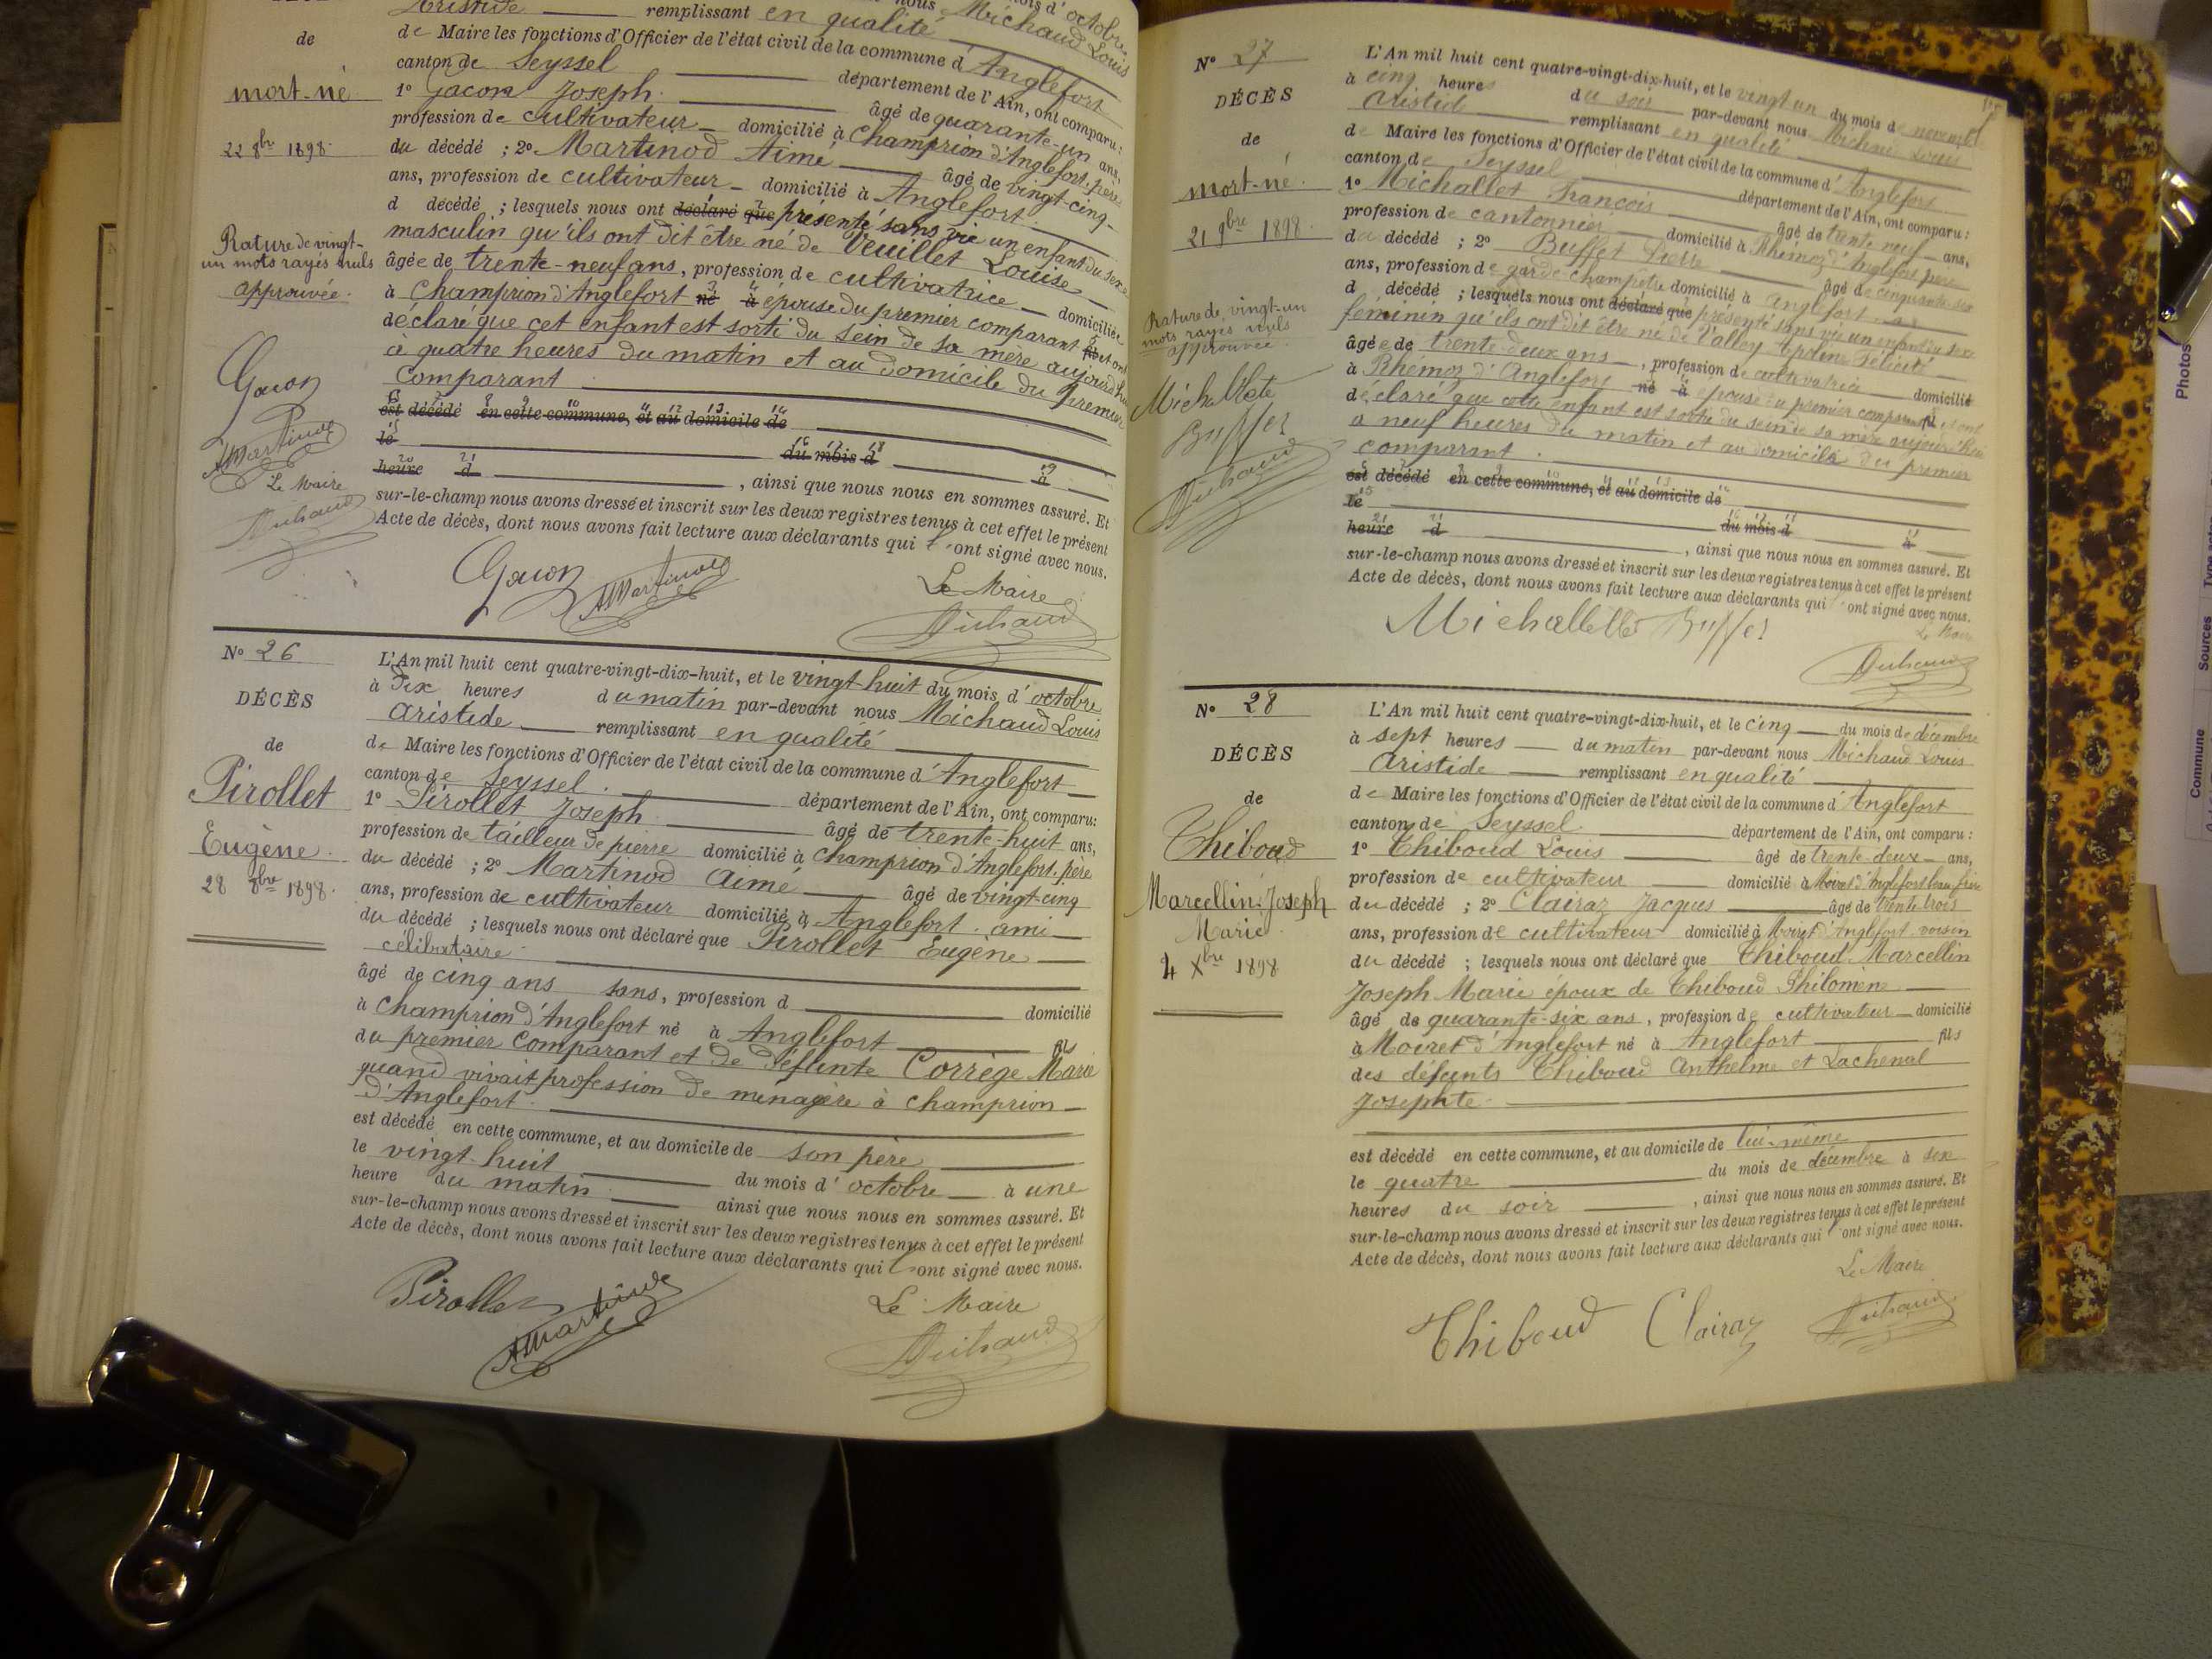 de
mort-né
22 8bre 1898
Rature de vingt-
un mots rayés nuls
approuvée.
Gacon
AMartinod
Le Maire
Michaud
Aristide remplissant en qualité
de Maire les fonctions d'Officier de l'état civil de la commune d'Anglefort
canton de Seyssel département de l'Ain, ont comparu :
1° Gacon Joseph âgé de quarante-un ans,
profession de cultivateur domicilié à Champrion d'Anglefort, père
du décédé ; 2° Martinod Aimé âgé de vingt-cinq
ans, profession de cultivateur domicilié à Anglefort
d décédé ; lesquels nous ont déclaré que présenté sans vie un enfant du sexe
masculin qu'ils ont dit être né de Veuillet Louise
âgée de trente-neuf ans, profession de cultivatrice domiciliée
à Champrion d'Anglefort né à épouse du premier comparant et ont
déclaré que cet enfant est sorti du sein de sa mère aujourd'hui
à quatre heures du matin et au domicile du premier
comparant
est décédé en cette commune, et au domicile de
le du mois d à
heure d , ainsi que nous nous en sommes assuré. Et
sur-le-champ nous avons dressé et inscrit sur les deux registres tenus à cet effet le présent
Acte de décès, dont nous avons fait lecture aux déclarants qui l'ont signé avec nous.
Gacon AMartinod Le Maire
Michaud
N° 26
DÉCÈS
de
Pirollet
Eugène
28 8bre 1898
L'An mil huit cent quatre-vingt-dix-huit, et le vingt-huit du mois d'octobre
à dix heures du matin par-devant nous Michaud Louis
Aristide remplissant en qualité
de Maire les fonctions d'Officier de l'état civil de la commune d'Anglefort
canton de Seyssel département de l'Ain, ont comparu :
1° Pirollet Joseph âgé de trente-huit ans,
profession de tailleur de pierre domicilié à Champrion d'Anglefort, père
du décédé ; 2° Martinod Aimé âgé de vingt-cinq
ans, profession de cultivateur domicilié à Anglefort, ami
du décédé ; lesquels nous ont déclaré que Pirollet Eugène
célibataire
âgé de cinq ans sans, profession d domicilié
à Champrion d'Anglefort né à Anglefort fils
du premier comparant et de défunte Corrège Marie
quand vivait profession de ménagère à Champrion
d'Anglefort
est décédé en cette commune, et au domicile de son père
le vingt-huit du mois d'octobre à une
heure du matin ainsi que nous nous en sommes assuré. Et
sur-le-champ nous avons dressé et inscrit sur les deux registres tenus à cet effet le présent
Acte de décès, dont nous avons fait lecture aux déclarants qui l'ont signé avec nous.
Pirollet AMartinod Le Maire
Michaud
N° 27
DÉCÈS
de
mort-né
21 9bre 1898
Rature de vingt-un
mots rayés nuls
approuvée
Michallet
Buffet
Michaud
L'An mil huit cent quatre-vingt-dix-huit, et le vingt un du mois de novembre
à cinq heures du soir par-devant nous Michaud Louis
Aristide remplissant en qualité
de Maire les fonctions d'Officier de l'état civil de la commune d'Anglefort
canton de Seyssel département de l'Ain, ont comparu :
1° Michallet François âgé de trente neuf ans,
profession de cantonnier domicilié à Rhémoz d'Anglefort père
du décédé ; 2° Buffet Pierre âgé de cinquante-six
ans, profession de garde-champêtre domicilié à Anglefort
d décédé ; lesquels nous ont déclaré que présenté sans vie un enfant du sexe
féminin qu'ils ont dit être né de Valley Félicité
âgée de trente-deux ans, profession de cultivatrice domicilié
à Rhémoz d'Anglefort né à épouse du premier comparant et ont
déclaré que cette enfant est sortie du sein de sa mère aujourd'hui
à neuf heures du matin et au domicile du premier
comparant
est décédé en cette commune, et au domicile de
le du mois d à
heure d , ainsi que nous nous en sommes assuré. Et
sur-le-champ nous avons dressé et inscrit sur les deux registres tenus à cet effet le présent
Acte de décès, dont nous avons fait lecture aux déclarants qui l'ont signé avec nous.
Michallet Buffet Le Maire
Michaud
N° 28
DÉCÈS
de
Thiboud
Marcellin Joseph
Marie
4 Xbre 1898
L'An mil huit cent quatre-vingt-dix-huit, et le cinq du mois de décembre
à sept heures du matin par-devant nous Michaud Louis
Aristide remplissant en qualité
de Maire les fonctions d'Officier de l'état civil de la commune d'Anglefort
canton de Seyssel département de l'Ain, ont comparu :
1° Thiboud Louis âgé de trente-deux ans,
profession de cultivateur domicilié à Moiret d'Anglefort beau frère
du décédé ; 2° Clairaz Jacques âgé de trente trois
ans, profession de cultivateur domicilié à Moiret d'Anglefort voisin
du décédé ; lesquels nous ont déclaré que Thiboud Marcellin
Joseph Marie époux de Thiboud Philomène
âgé de quarante-six ans, profession de cultivateur domicilié
à Moiret d'Anglefort né à Anglefort fils
des défunts Thiboud Anthelme et Lachenal
Josephte
est décédé en cette commune, et au domicile de lui-même
le quatre du mois de décembre à six
heures du soir , ainsi que nous nous en sommes assuré. Et
sur-le-champ nous avons dressé et inscrit sur les deux registres tenus à cet effet le présent
Acte de décès, dont nous avons fait lecture aux déclarants qui l'ont signé avec nous.
Le Maire
Thiboud Clairaz Michaud
Photos
Sources
Commune